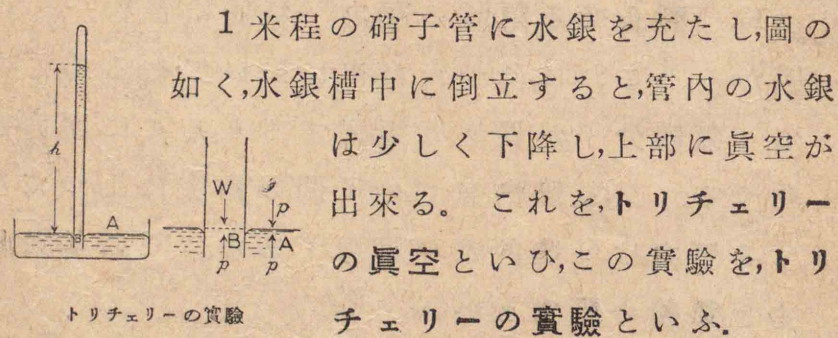 1米程の硝子管に水銀を充たし,圖の
如く,水銀槽中に倒立すると,管內の水銀
は少しく下降し,上部に眞空が
出來る。 これを,トリチェリー
の眞空といひ,この實驗を,トリ
チェリーの實驗といふ.
h
A
B
W
p
B
A
p
p
トリチェリーの實驗